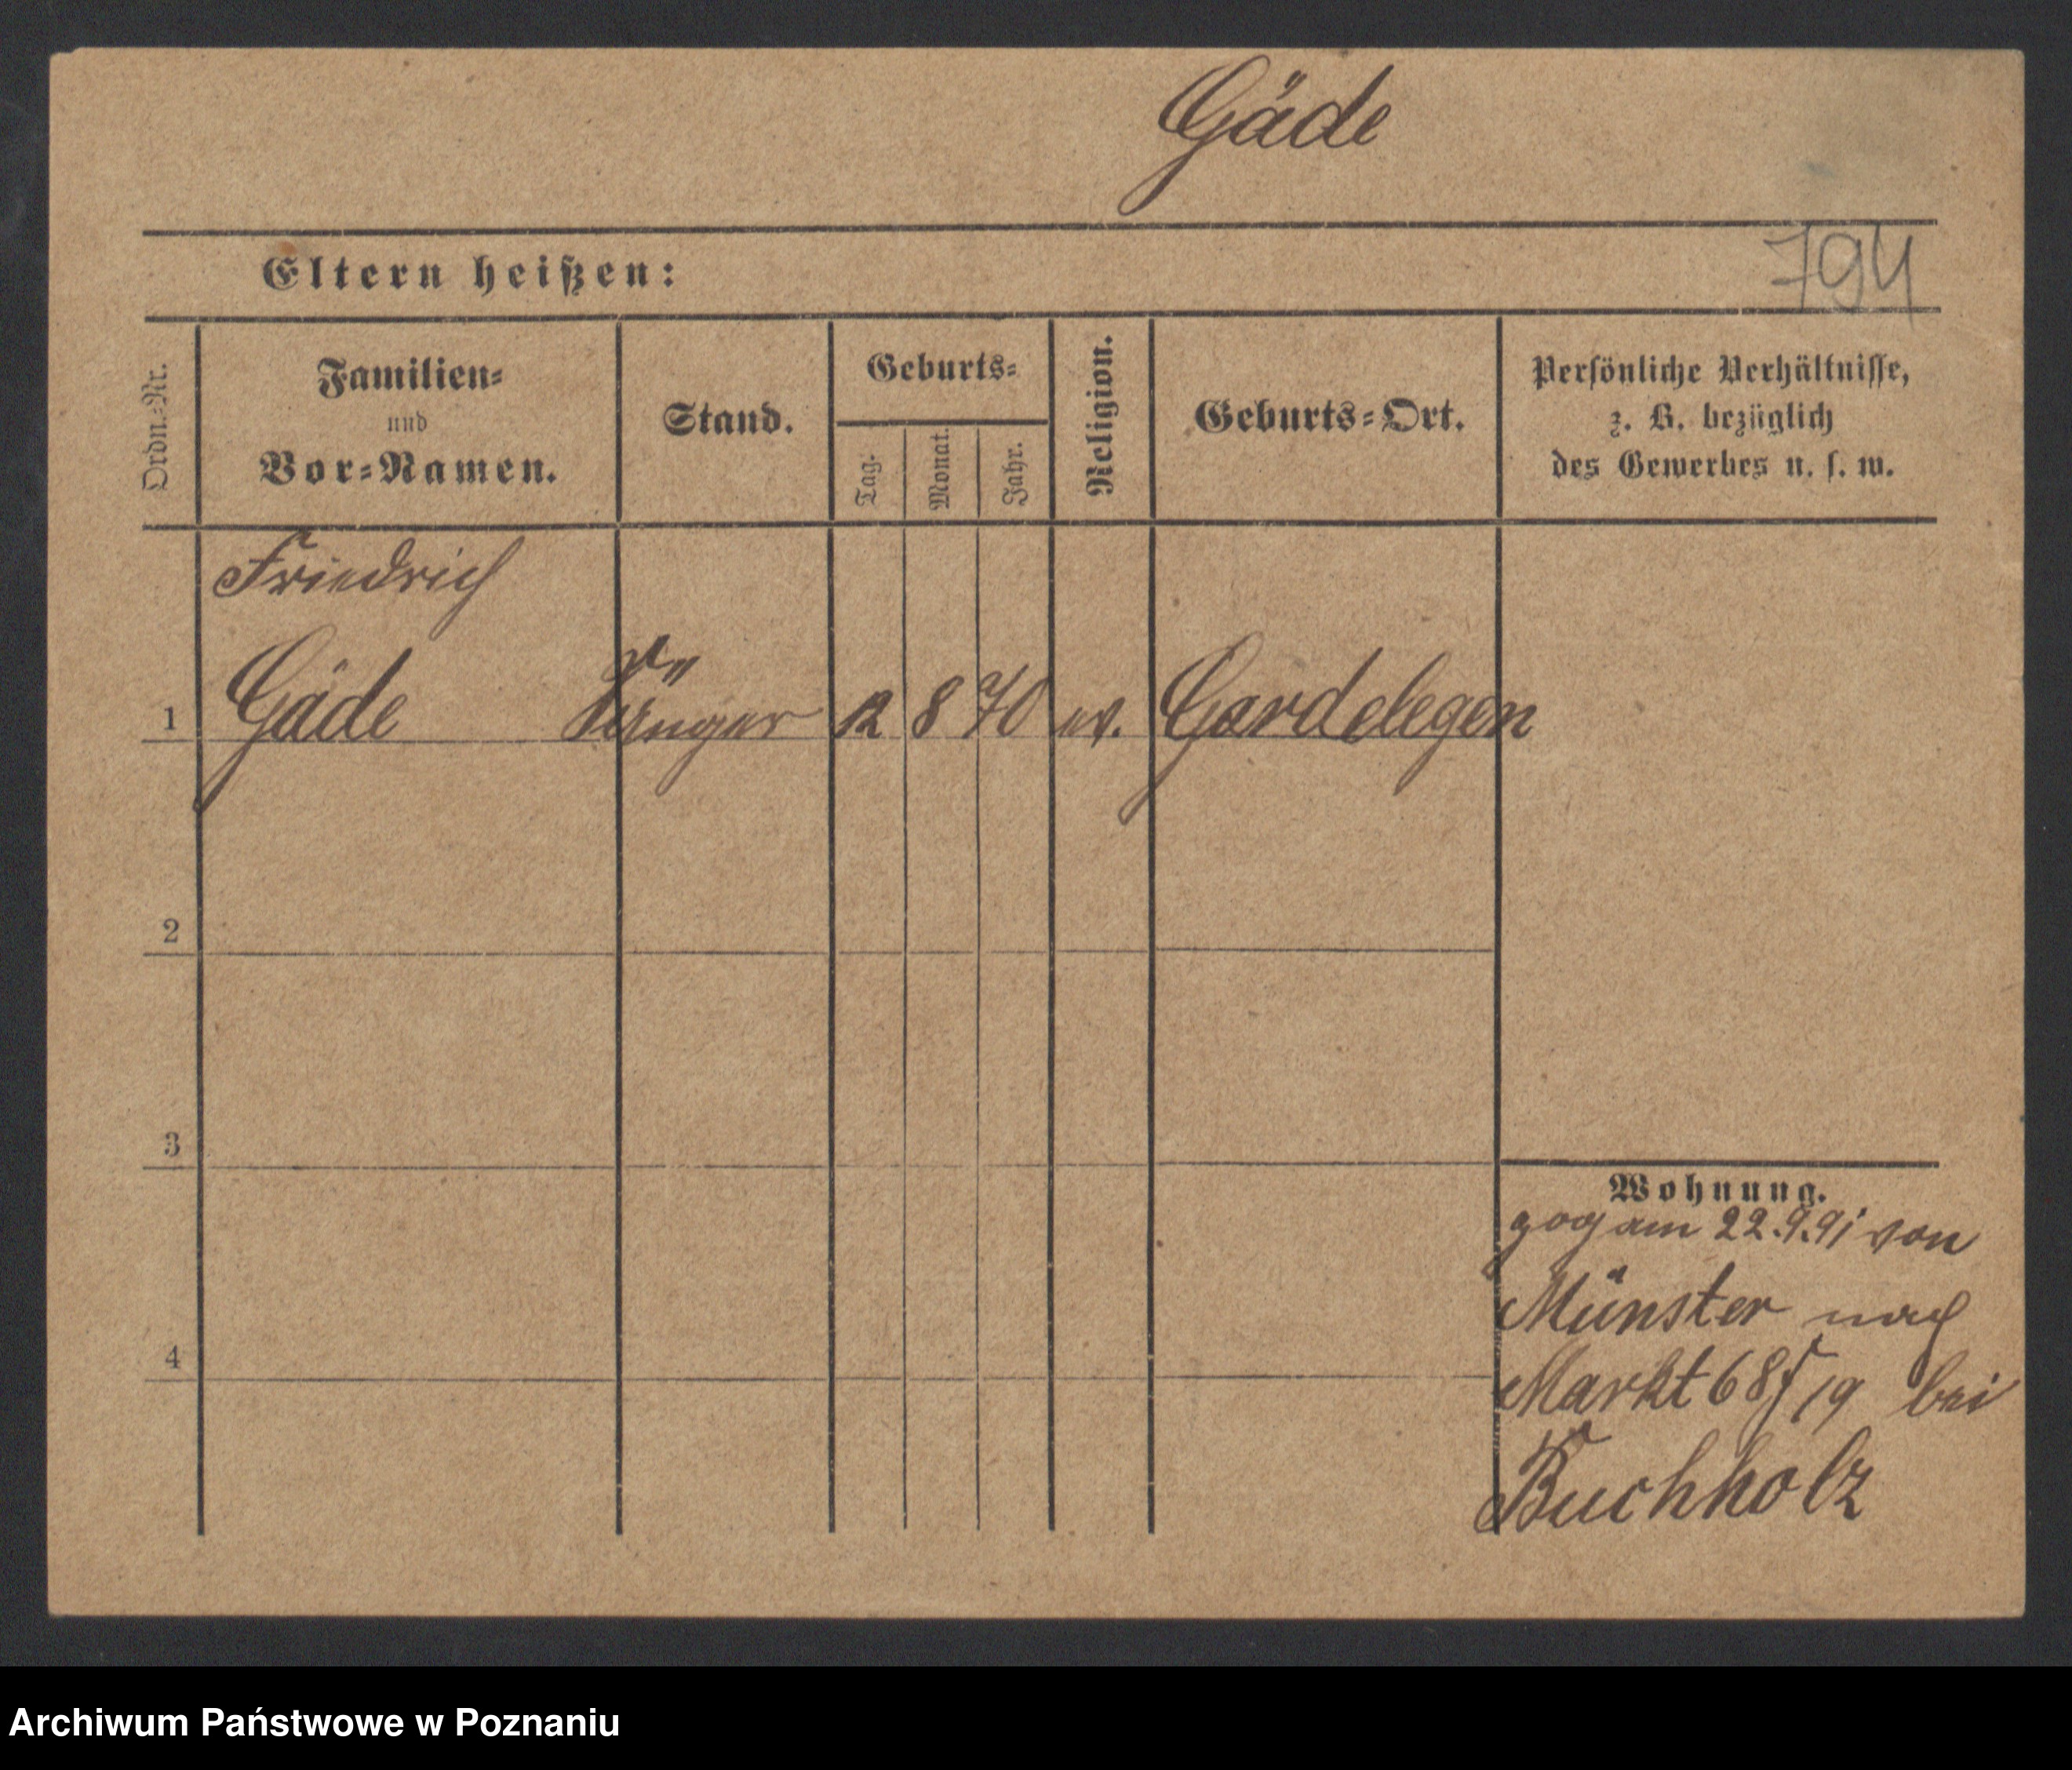 Gäde
Eltern heißen:
794
Ordn.-Nr.
Familien-
und
Vor-Namen.
Stand.
Geburts-
Tag.
Monat.
Jahr.
Religion.
Geburts-Ort.
Persönliche Verhältnisse,
z. B. bezüglich
des Gewerbes u. s. w.
Friedrich
1 Gäde Sänger 12 8 70 ev. Gardelegen
2
3
4
Wohnung.
zog am 22.9.91 von
Münster nach
Markt 68/ 19 bei
Buchholz
Archiwum Państwowe w Poznaniu